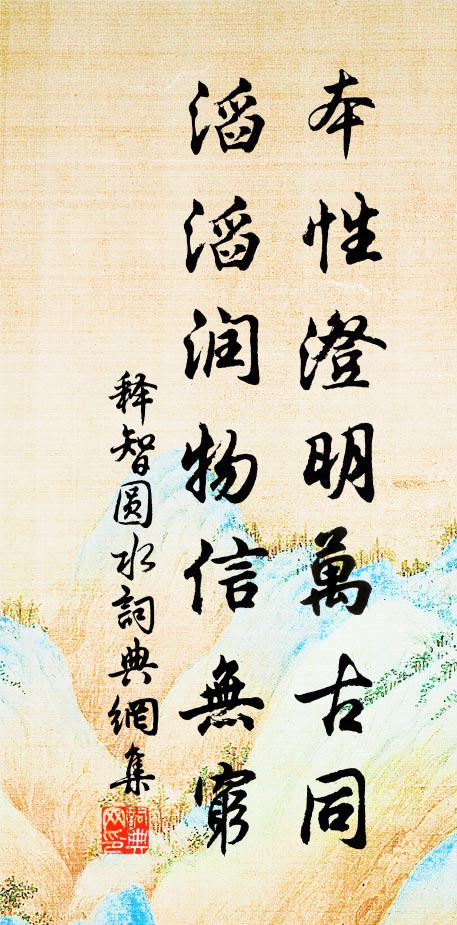 本性澄明萬古同
滔滔润物信無窮
释智圆水詞典網集
詞典網印